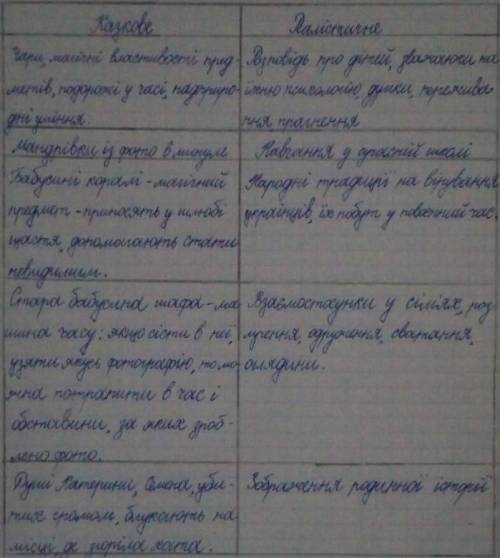 Казкове
Реалістичне
Чари, магічні властивості пред-
метів, подорожі у часі, надприро-
дні уміння.
Розповідь про дітей, зважаючи на
їхню психологію, думки, пережива-
ння прагнення
Мандрівки із фото в минуле
Навчання у сучасній школі
Бабусині коралі - магічний
предмет - приносять у шлюбі
щастя, допомагають стати
невидимим.
Народні традиції на вірування
українців, їх побут у повоєнний час.
Стара бабусина шафа - ма-
шина часу: якщо сісти в неї,
узяти якусь фотографію, то мо-
жна потрапити в час і
обставини, за яких зроб-
лено фото.
Взаємостосунки у сім'ях, роз-
лучення, одруження, сватання,
оглядини.
Душі Катерини, Семена, уби-
тих громом, блукають на
місці, де згоріла хата.
Зображення родинної історії